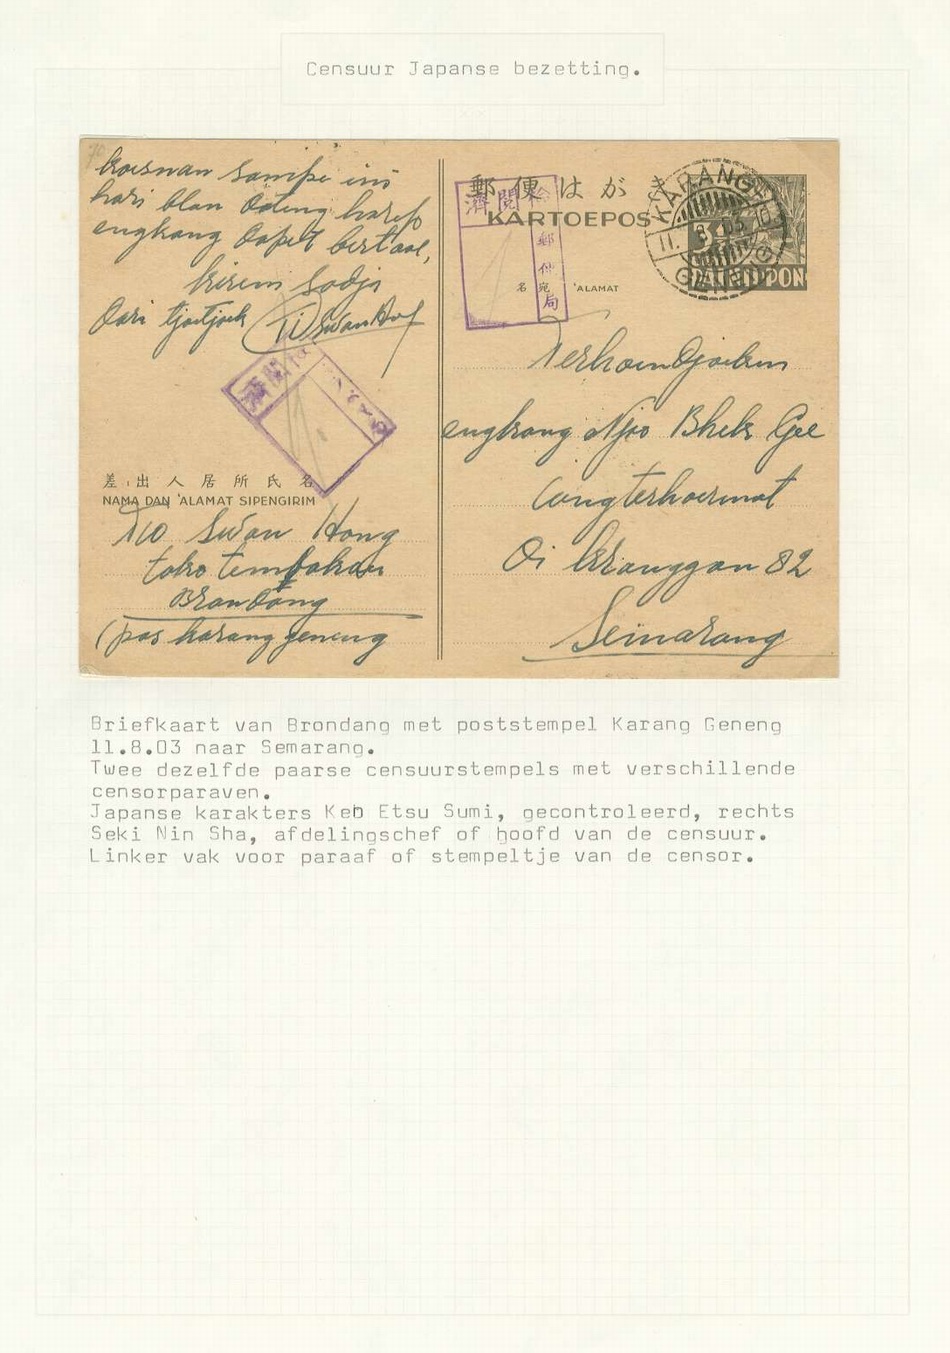 Censuur Japanse bezetting.
koesnan sampe ini
hari blan dateng harep
engkang dapet bertaoe,
kirem sadja
Dari tjoetjoek
差出人居所氏名
NAMA DAN 'ALAMAT SIPENGIRIM
Tio Swan Hong
toko tembakau
Brondong
(pos karang geneng
郵便はがき
KARTOEPOS
検閲済
郵便局
名宛
'ALAMAT
KARANG
11. 8 .03
GENENG
3½
DAI NIPPON
Terhoendjoeken
engkang Njoo Bhek Gee
jang terhoermat
di Kranggan 82
Semarang
Briefkaart van Brondang met poststempel Karang Geneng
11.8.03 naar Semarang.
Twee dezelfde paarse censuurstempels met verschillende
censorparaven.
Japanse karakters Ken Etsu Sumi, gecontroleerd, rechts
Seki Nin Sha, afdelingschef of hoofd van de censuur.
Linker vak voor paraaf of stempeltje van de censor.